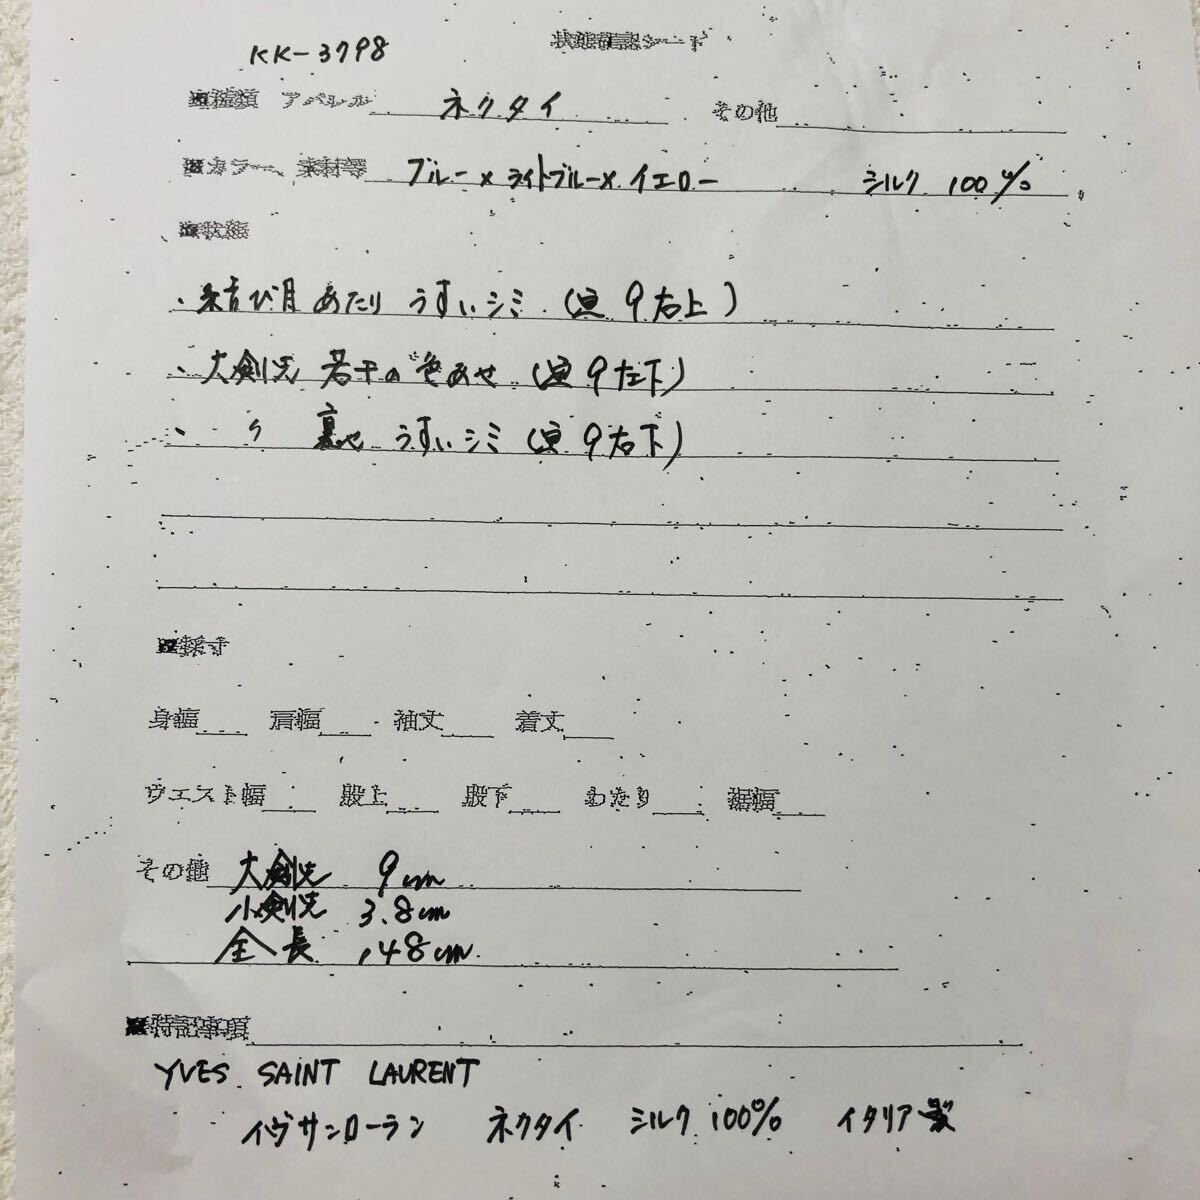 KK-3798
状態確認シート
■種類 アパレル ネクタイ その他
■カラー、素材等 ブルー×ライトブルー×イエロー シルク 100%
■状態
、結び目あたり うすいシミ (画9右上)
、大剣先 若干の色あせ (画9左下)
、 〃 裏地 うすいシミ (画9右下)
■採寸
身幅 肩幅 袖丈 着丈
ウエスト幅 股上 股下 わたり 裾幅
その他 大剣先 9cm
小剣先 3.8cm
全長 148cm
■特記事項
YVES SAINT LAURENT
イヴサンローラン ネクタイ シルク100% イタリア製